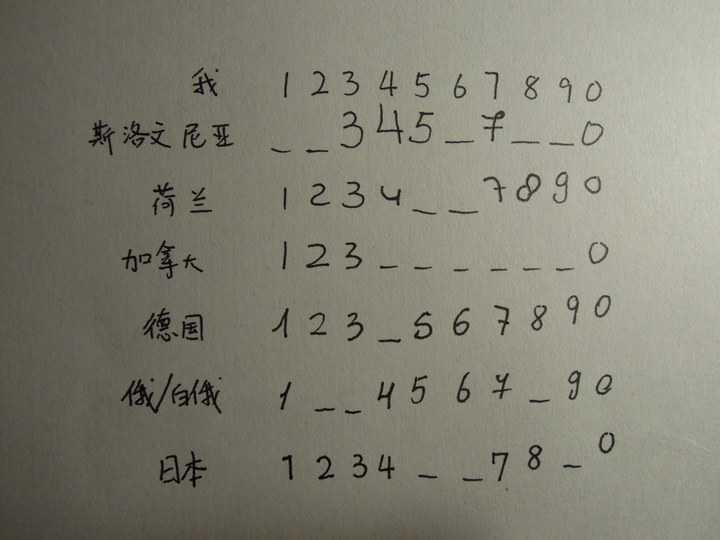 我 1 2 3 4 5 6 7 8 9 0
斯洛文尼亚 _ _ 3 4 5 _ 7 _ _ 0
荷兰 1 2 3 4 _ _ 7 8 9 0
加拿大 1 2 3 _ _ _ _ _ _ 0
德国 1 2 3 _ 5 6 7 8 9 0
俄/白俄 1 _ _ 4 5 6 7 _ 9 0
日本 1 2 3 4 _ _ 7 8 _ 0